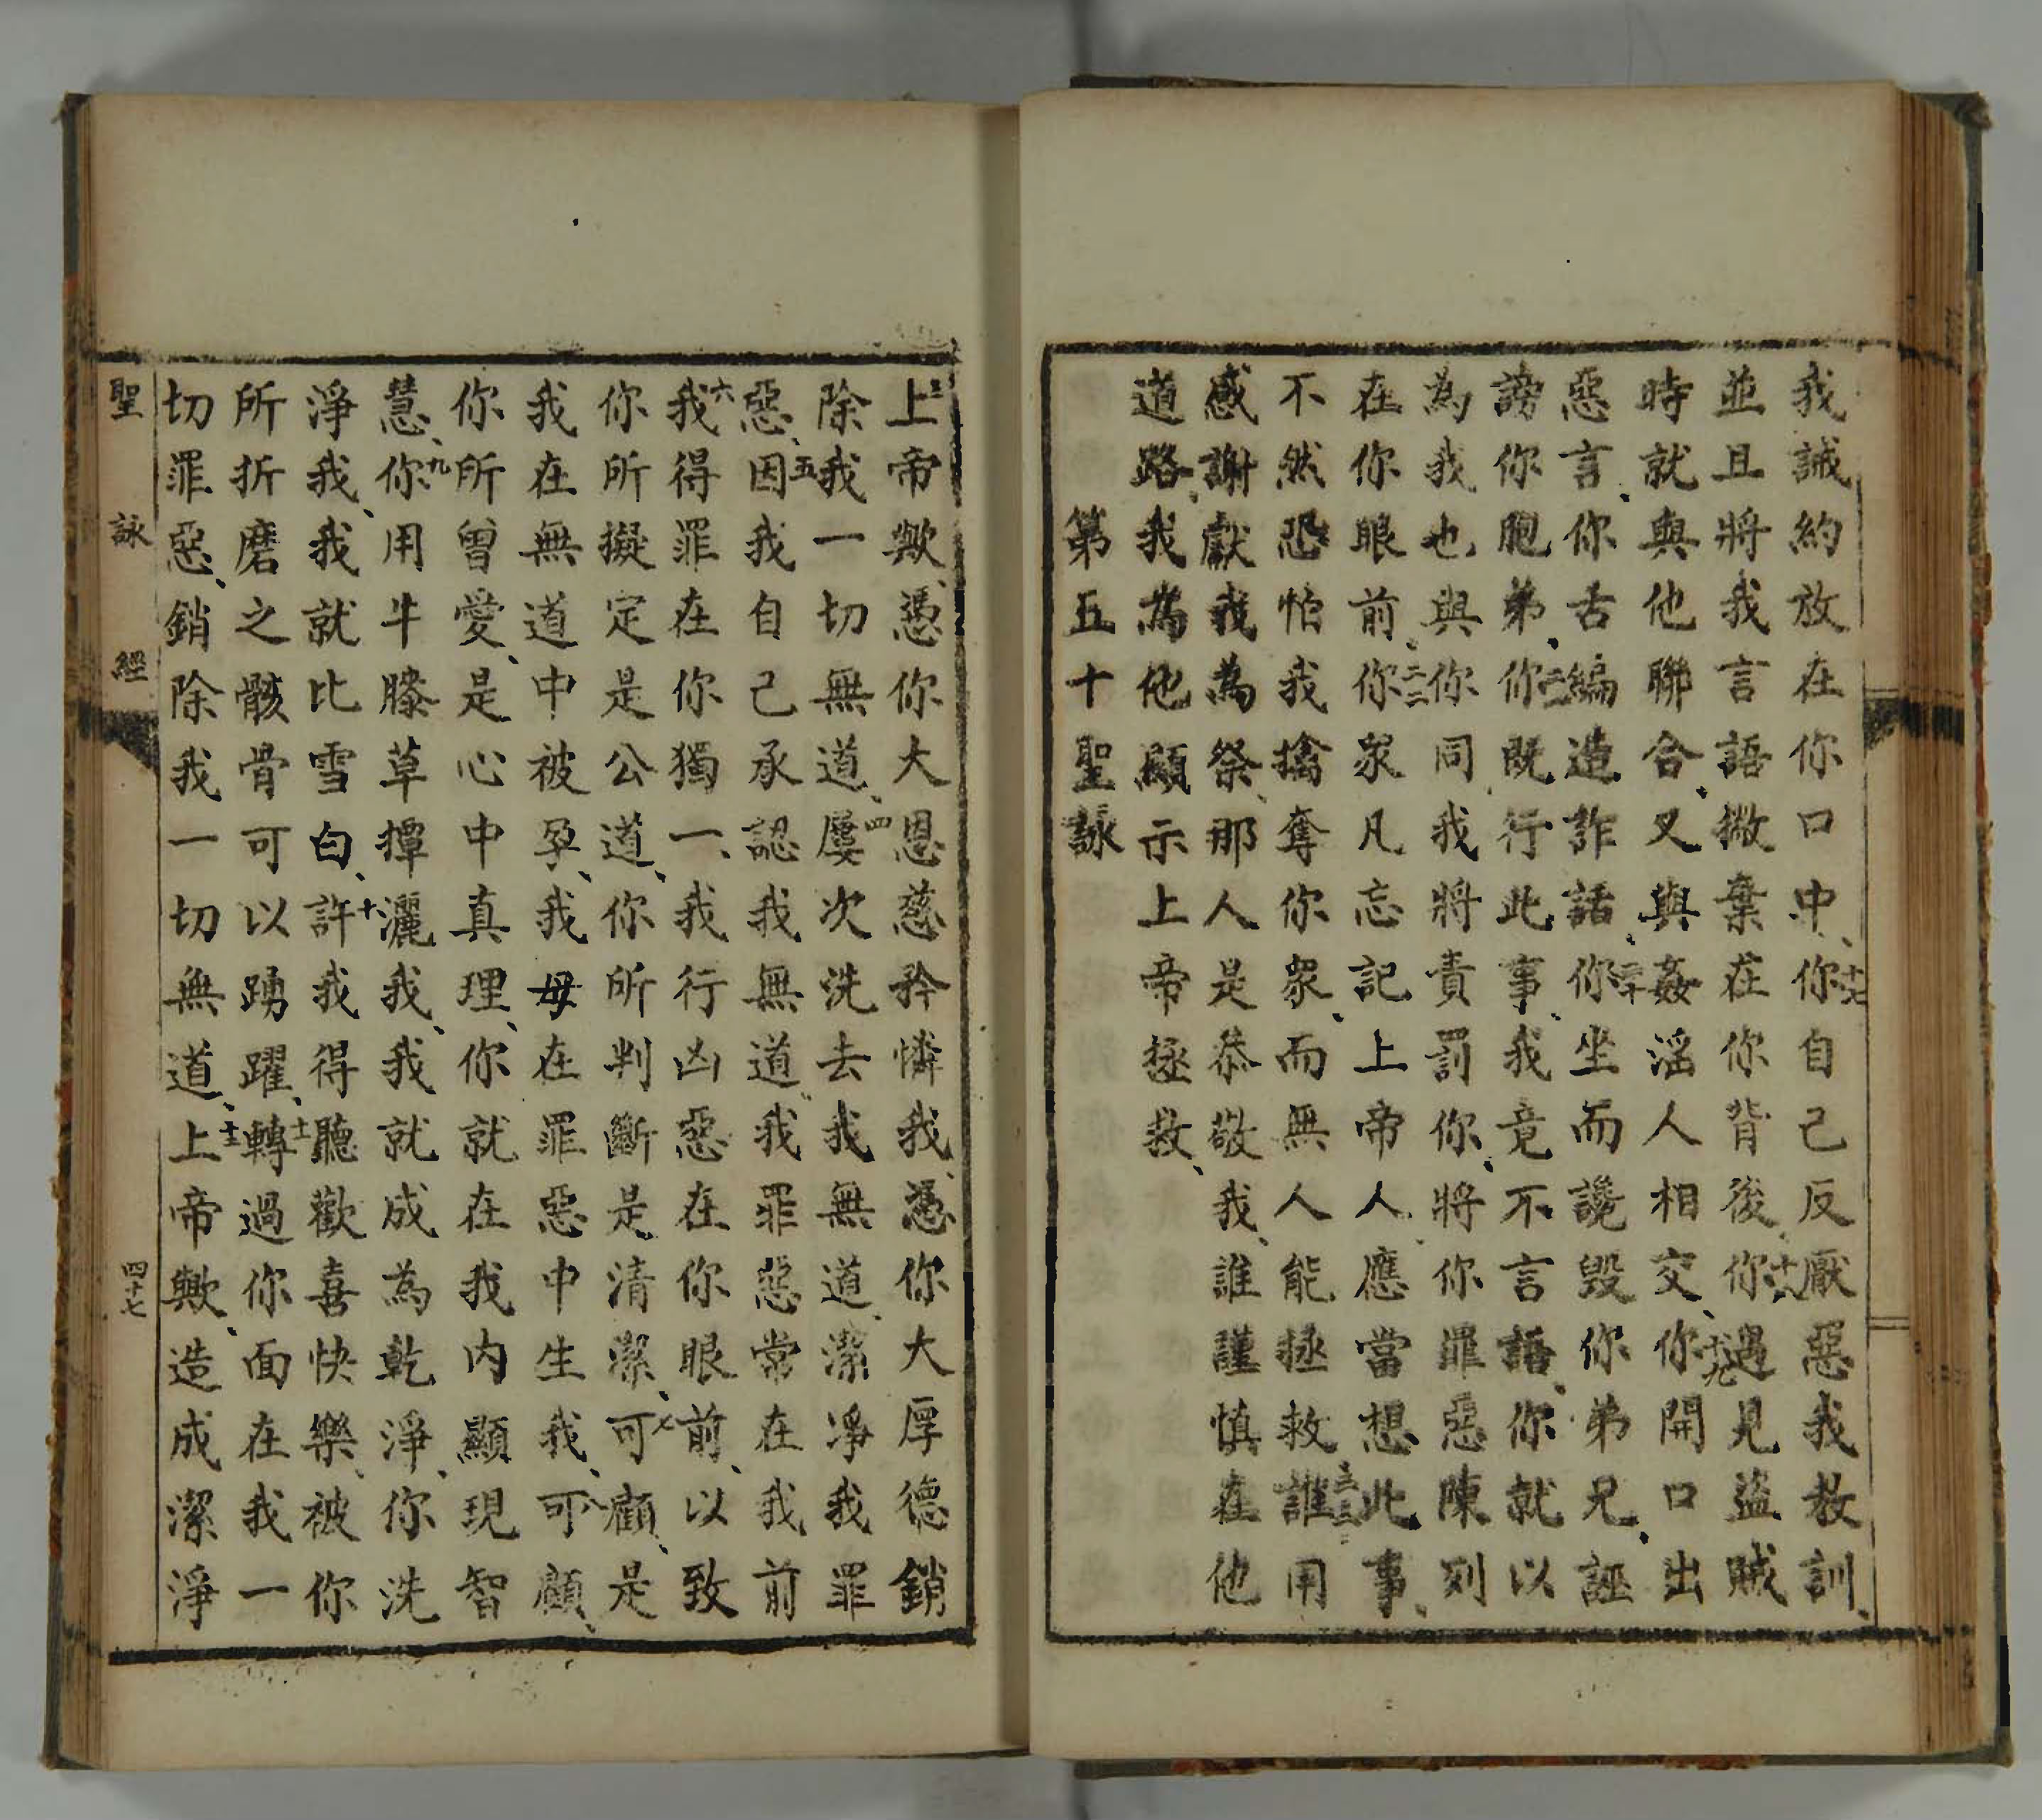 我誡約放在你口中、十七你自己反厭惡我教訓、
並且將我言語撇棄在你背後、十八你遇見盜賊
時就與他聯合、又與姦淫人相交、十九你開口出
惡言、你舌編造詐話、二十你坐而讒毀你弟兄、誣
謗你胞弟、二一你既行此事、我竟不言語、你就以
為我也與你同、我將責罰你、將你罪惡陳列
在你眼前、二二你眾凡忘記上帝人、應當想此事、
不然恐怕我擒奪你眾、而無人能拯救、二三誰用
感謝獻我為祭、那人是恭敬我、誰謹慎在他
道路、我為他顯示上帝拯救、
第五十聖詠
三上帝歟、憑你大恩慈矜憐我、憑你大厚德銷
除我一切無道、四屢次洗去我無道、潔淨我罪
惡、五因我自己承認我無道、我罪惡常在我前
六我得罪在你獨一、我行凶惡在你眼前、以致
你所擬定是公道、你所判斷是清潔、七可顧、是
我在無道中被孕、我母在罪惡中生我、八可顧、
你所曾愛、是心中真理、你就在我内顯現智
慧、九你用牛膝草撢灑我、我就成為乾淨、你洗
淨我、我就比雪白、十許我得聽歡喜快樂、被你
所折磨之骸骨可以踴躍、十一轉過你面在我一
切罪惡、銷除我一切無道、十二上帝歟、造成潔淨
聖詠經
四十七